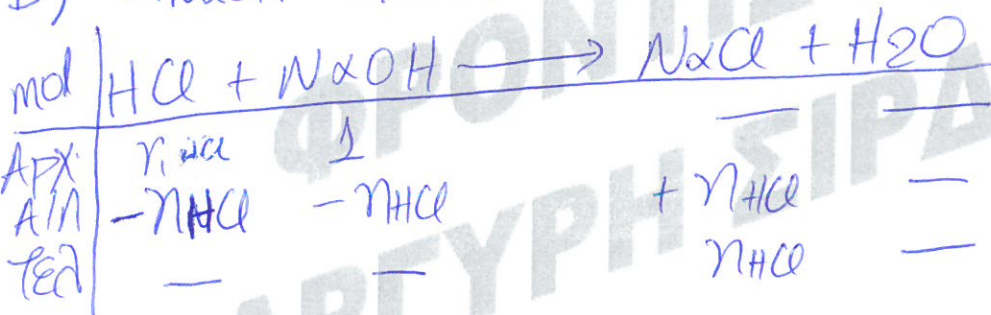 mol HCl + NaOH → NaCl + H2O
Αρχ. 1 — —
Α/Π -nHCl -nHCl + nHCl —
Τελ — — nHCl —
ΦΡΟΝΤΙ
ΑΡΓΥΡΗ ΣΙΡΔ